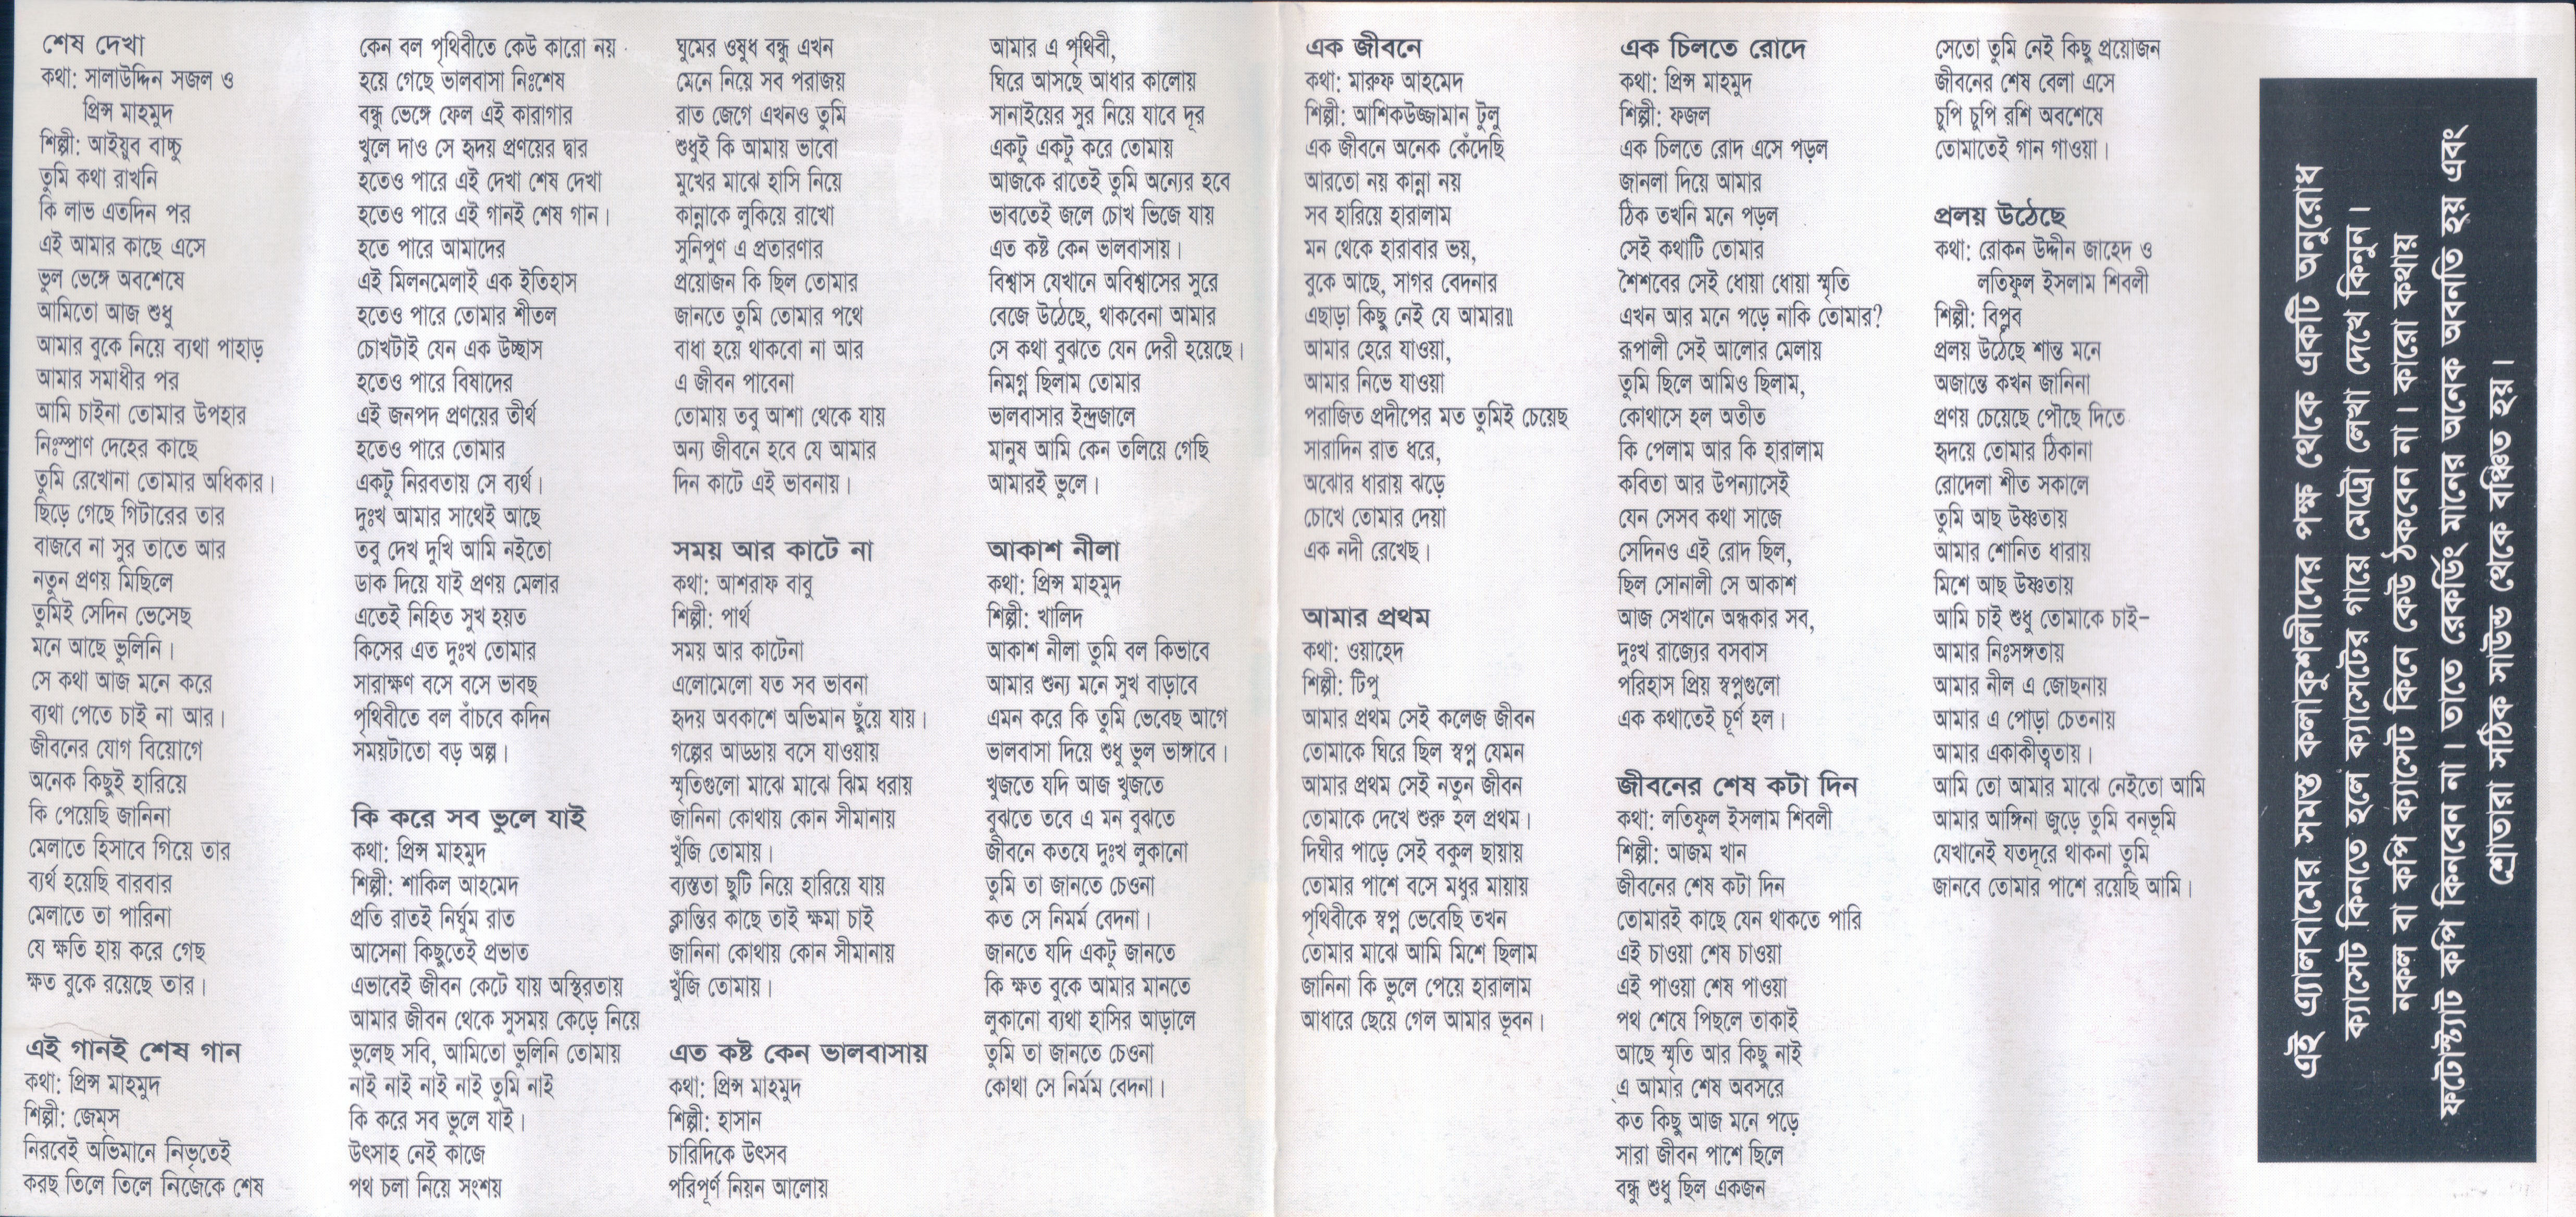 শেষ দেখা
কথা: সালাউদ্দিন সজল ও
প্রিন্স মাহমুদ
শিল্পী: আইয়ুব বাচ্চু
তুমি কথা রাখনি
কি লাভ এতদিন পর
এই আমার কাছে এসে
ভুল ভেঙ্গে অবশেষে
আমিতো আজ শুধু
আমার বুকে নিয়ে ব্যথা পাহাড়
আমার সমাধীর পর
আমি চাইনা তোমার উপহার
নিঃস্প্রাণ দেহের কাছে
তুমি রেখোনা তোমার অধিকার।
ছিড়ে গেছে গিটারের তার
বাজবে না সুর তাতে আর
নতুন প্রণয় মিছিলে
তুমিই সেদিন ভেসেছ
মনে আছে ভুলিনি।
সে কথা আজ মনে করে
ব্যথা পেতে চাই না আর।
জীবনের যোগ বিয়োগে
অনেক কিছুই হারিয়ে
কি পেয়েছি জানিনা
মেলাতে হিসাবে গিয়ে তার
ব্যর্থ হয়েছি বারবার
মেলাতে তা পারিনা
যে ক্ষতি হায় করে গেছ
ক্ষত বুকে রয়েছে তার।
এই গানই শেষ গান
কথা: প্রিন্স মাহমুদ
শিল্পী: জেম্‌স
নিরবেই অভিমানে নিভৃতেই
করছ তিলে তিলে নিজেকে শেষ
কেন বল পৃথিবীতে কেউ কারো নয়
হয়ে গেছে ভালবাসা নিঃশেষ
বন্ধু ভেঙ্গে ফেল এই কারাগার
খুলে দাও সে হৃদয় প্রণয়ের দ্বার
হতেও পারে এই দেখা শেষ দেখা
হতেও পারে এই গানই শেষ গান।
হতে পারে আমাদের
এই মিলনমেলাই এক ইতিহাস
হতেও পারে তোমার শীতল
চোখটাই যেন এক উচ্ছাস
হতেও পারে বিষাদের
এই জনপদ প্রণয়ের তীর্থ
হতেও পারে তোমার
একটু নিরবতায় সে ব্যর্থ।
দুঃখ আমার সাথেই আছে
তবু দেখ দুখি আমি নইতো
ডাক দিয়ে যাই প্রণয় মেলার
এতেই নিহিত সুখ হয়ত
কিসের এত দুঃখ তোমার
সারাক্ষণ বসে বসে ভাবছ
পৃথিবীতে বল বাঁচবে কদিন
সময়টাতো বড় অল্প।
কি করে সব ভুলে যাই
কথা: প্রিন্স মাহমুদ
শিল্পী: শাকিল আহমেদ
প্রতি রাতই নির্ঘুম রাত
আসেনা কিছুতেই প্রভাত
এভাবেই জীবন কেটে যায় অস্থিরতায়
আমার জীবন থেকে সুসময় কেড়ে নিয়ে
ভুলেছ সবি, আমিতো ভুলিনি তোমায়
নাই নাই নাই নাই তুমি নাই
কি করে সব ভুলে যাই।
উৎসাহ নেই কাজে
পথ চলা নিয়ে সংশয়
ঘুমের ওষুধ বন্ধু এখন
মেনে নিয়ে সব পরাজয়
রাত জেগে এখনও তুমি
শুধুই কি আমায় ভাবো
মুখের মাঝে হাসি নিয়ে
কান্নাকে লুকিয়ে রাখো
সুনিপুণ এ প্রতারণার
প্রয়োজন কি ছিল তোমার
জানতে তুমি তোমার পথে
বাধা হয়ে থাকবো না আর
এ জীবন পাবেনা
তোমায় তবু আশা থেকে যায়
অন্য জীবনে হবে যে আমার
দিন কাটে এই ভাবনায়।
সময় আর কাটে না
কথা: আশরাফ বাবু
শিল্পী: পার্থ
সময় আর কাটেনা
এলোমেলো যত সব ভাবনা
হৃদয় অবকাশে অভিমান ছুঁয়ে যায়।
গল্পের আড্ডায় বসে যাওয়ায়
স্মৃতিগুলো মাঝে মাঝে ঝিম ধরায়
জানিনা কোথায় কোন সীমানায়
খুঁজি তোমায়।
ব্যস্ততা ছুটি নিয়ে হারিয়ে যায়
ক্লান্তির কাছে তাই ক্ষমা চাই
জানিনা কোথায় কোন সীমানায়
খুঁজি তোমায়।
এত কষ্ট কেন ভালবাসায়
কথা: প্রিন্স মাহমুদ
শিল্পী: হাসান
চারিদিকে উৎসব
পরিপূর্ণ নিয়ন আলোয়
আমার এ পৃথিবী,
ঘিরে আসছে আধার কালোয়
সানাইয়ের সুর নিয়ে যাবে দূর
একটু একটু করে তোমায়
আজকে রাতেই তুমি অন্যের হবে
ভাবতেই জলে চোখ ভিজে যায়
এত কষ্ট কেন ভালবাসায়।
বিশ্বাস যেখানে অবিশ্বাসের সুরে
বেজে উঠেছে, থাকবেনা আমার
সে কথা বুঝতে যেন দেরী হয়েছে।
নিমগ্ন ছিলাম তোমার
ভালবাসার ইন্দ্রজালে
মানুষ আমি কেন তলিয়ে গেছি
আমারই ভুলে।
আকাশ নীলা
কথা: প্রিন্স মাহমুদ
শিল্পী: খালিদ
আকাশ নীলা তুমি বল কিভাবে
আমার শুন্য মনে সুখ বাড়াবে
এমন করে কি তুমি ভেবেছ আগে
ভালবাসা দিয়ে শুধু ভুল ভাঙ্গাবে।
খুজতে যদি আজ খুজতে
বুঝতে তবে এ মন বুঝতে
জীবনে কতযে দুঃখ লুকানো
তুমি তা জানতে চেওনা
কত সে নিমর্ম বেদনা।
জানতে যদি একটু জানতে
কি ক্ষত বুকে আমার মানতে
লুকানো ব্যথা হাসির আড়ালে
তুমি তা জানতে চেওনা
কোথা সে নির্মম বেদনা।
এক জীবনে
কথা: মারুফ আহমেদ
শিল্পী: আশিকউজ্জামান টুলু
এক জীবনে অনেক কেঁদেছি
আরতো নয় কান্না নয়
সব হারিয়ে হারালাম
মন থেকে হারাবার ভয়,
বুকে আছে, সাগর বেদনার
এছাড়া কিছু নেই যে আমার॥
আমার হেরে যাওয়া,
আমার নিভে যাওয়া
পরাজিত প্রদীপের মত তুমিই চেয়েছ
সারাদিন রাত ধরে,
অঝোর ধারায় ঝড়ে
চোখে তোমার দেয়া
এক নদী রেখেছ।
আমার প্রথম
কথা: ওয়াহেদ
শিল্পী: টিপু
আমার প্রথম সেই কলেজ জীবন
তোমাকে ঘিরে ছিল স্বপ্ন যেমন
আমার প্রথম সেই নতুন জীবন
তোমাকে দেখে শুরু হল প্রথম।
দিঘীর পাড়ে সেই বকুল ছায়ায়
তোমার পাশে বসে মধুর মায়ায়
পৃথিবীকে স্বপ্ন ভেবেছি তখন
তোমার মাঝে আমি মিশে ছিলাম
জানিনা কি ভুলে পেয়ে হারালাম
আধারে ছেয়ে গেল আমার ভূবন।
এক চিলতে রোদে
কথা: প্রিন্স মাহমুদ
শিল্পী: ফজল
এক চিলতে রোদ এসে পড়ল
জানলা দিয়ে আমার
ঠিক তখনি মনে পড়ল
সেই কথাটি তোমার
শৈশবের সেই ধোয়া ধোয়া স্মৃতি
এখন আর মনে পড়ে নাকি তোমার?
রূপালী সেই আলোর মেলায়
তুমি ছিলে আমিও ছিলাম,
কোথাসে হল অতীত
কি পেলাম আর কি হারালাম
কবিতা আর উপন্যাসেই
যেন সেসব কথা সাজে
সেদিনও এই রোদ ছিল,
ছিল সোনালী সে আকাশ
আজ সেখানে অন্ধকার সব,
দুঃখ রাজ্যের বসবাস
পরিহাস প্রিয় স্বপ্নগুলো
এক কথাতেই চূর্ণ হল।
জীবনের শেষ কটা দিন
কথা: লতিফুল ইসলাম শিবলী
শিল্পী: আজম খান
জীবনের শেষ কটা দিন
তোমারই কাছে যেন থাকতে পারি
এই চাওয়া শেষ চাওয়া
এই পাওয়া শেষ পাওয়া
পথ শেষে পিছলে তাকাই
আছে স্মৃতি আর কিছু নাই
এ আমার শেষ অবসরে
কত কিছু আজ মনে পড়ে
সারা জীবন পাশে ছিলে
বন্ধু শুধু ছিল একজন
সেতো তুমি নেই কিছু প্রয়োজন
জীবনের শেষ বেলা এসে
চুপি চুপি রশি অবশেষে
তোমাতেই গান গাওয়া।
প্রলয় উঠেছে
কথা: রোকন উদ্দীন জাহেদ ও
লতিফুল ইসলাম শিবলী
শিল্পী: বিপ্লব
প্রলয় উঠেছে শান্ত মনে
অজান্তে কখন জানিনা
প্রণয় চেয়েছে পৌছে দিতে
হৃদয়ে তোমার ঠিকানা
রোদেলা শীত সকালে
তুমি আছ উষ্ণতায়
আমার শোনিত ধারায়
মিশে আছ উষ্ণতায়
আমি চাই শুধু তোমাকে চাই-
আমার নিঃসঙ্গতায়
আমার নীল এ জোছনায়
আমার এ পোড়া চেতনায়
আমার একাকীত্বতায়।
আমি তো আমার মাঝে নেইতো আমি
আমার আঙ্গিনা জুড়ে তুমি বনভূমি
যেখানেই যতদূরে থাকনা তুমি
জানবে তোমার পাশে রয়েছি আমি।
এই এ্যালবামের সমস্ত কলাকুশলীদের পক্ষ থেকে একটি অনুরোধ
ক্যাসেট কিনতে হলে ক্যাসেটের গায়ে মেট্রো লেখা দেখে কিনুন।
নকল বা কপি ক্যাসেট কিনে কেউ ঠকবেন না। কারো কথায়
ফটোস্ট্যাট কপি কিনবেন না। তাতে রেকর্ডিং মানের অনেক অবনতি হয় এবং
শ্রোতারা সঠিক সাউন্ড থেকে বঞ্চিত হয়।